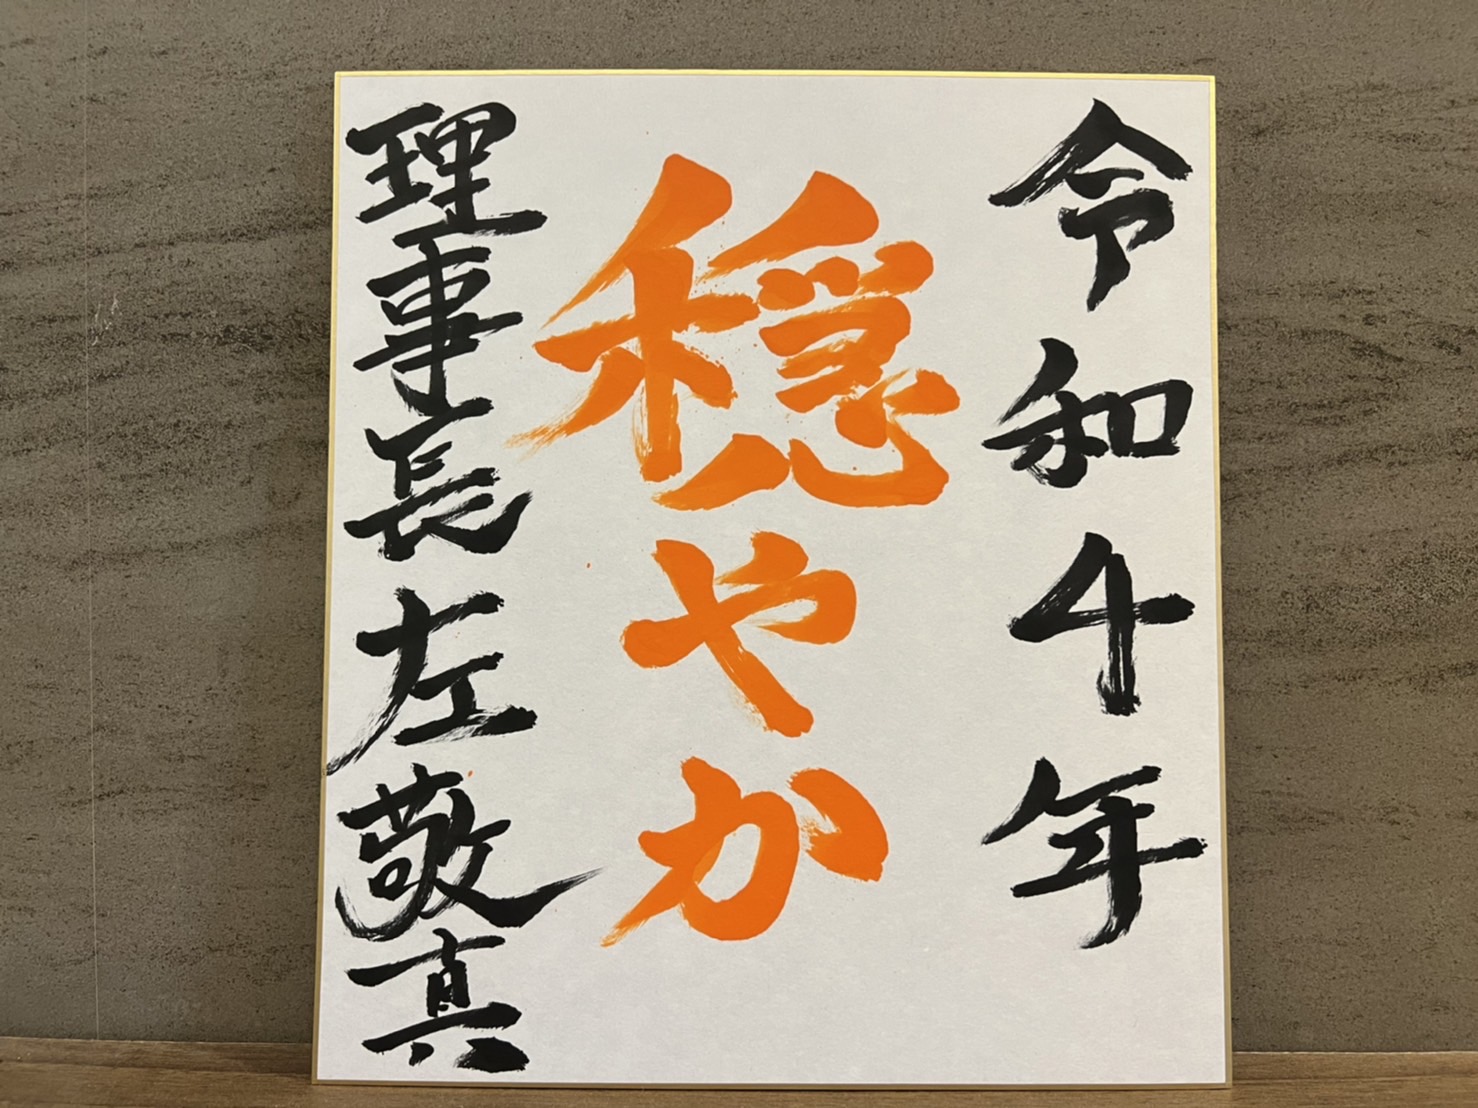 令和4年
穏やか
理事長左敬真